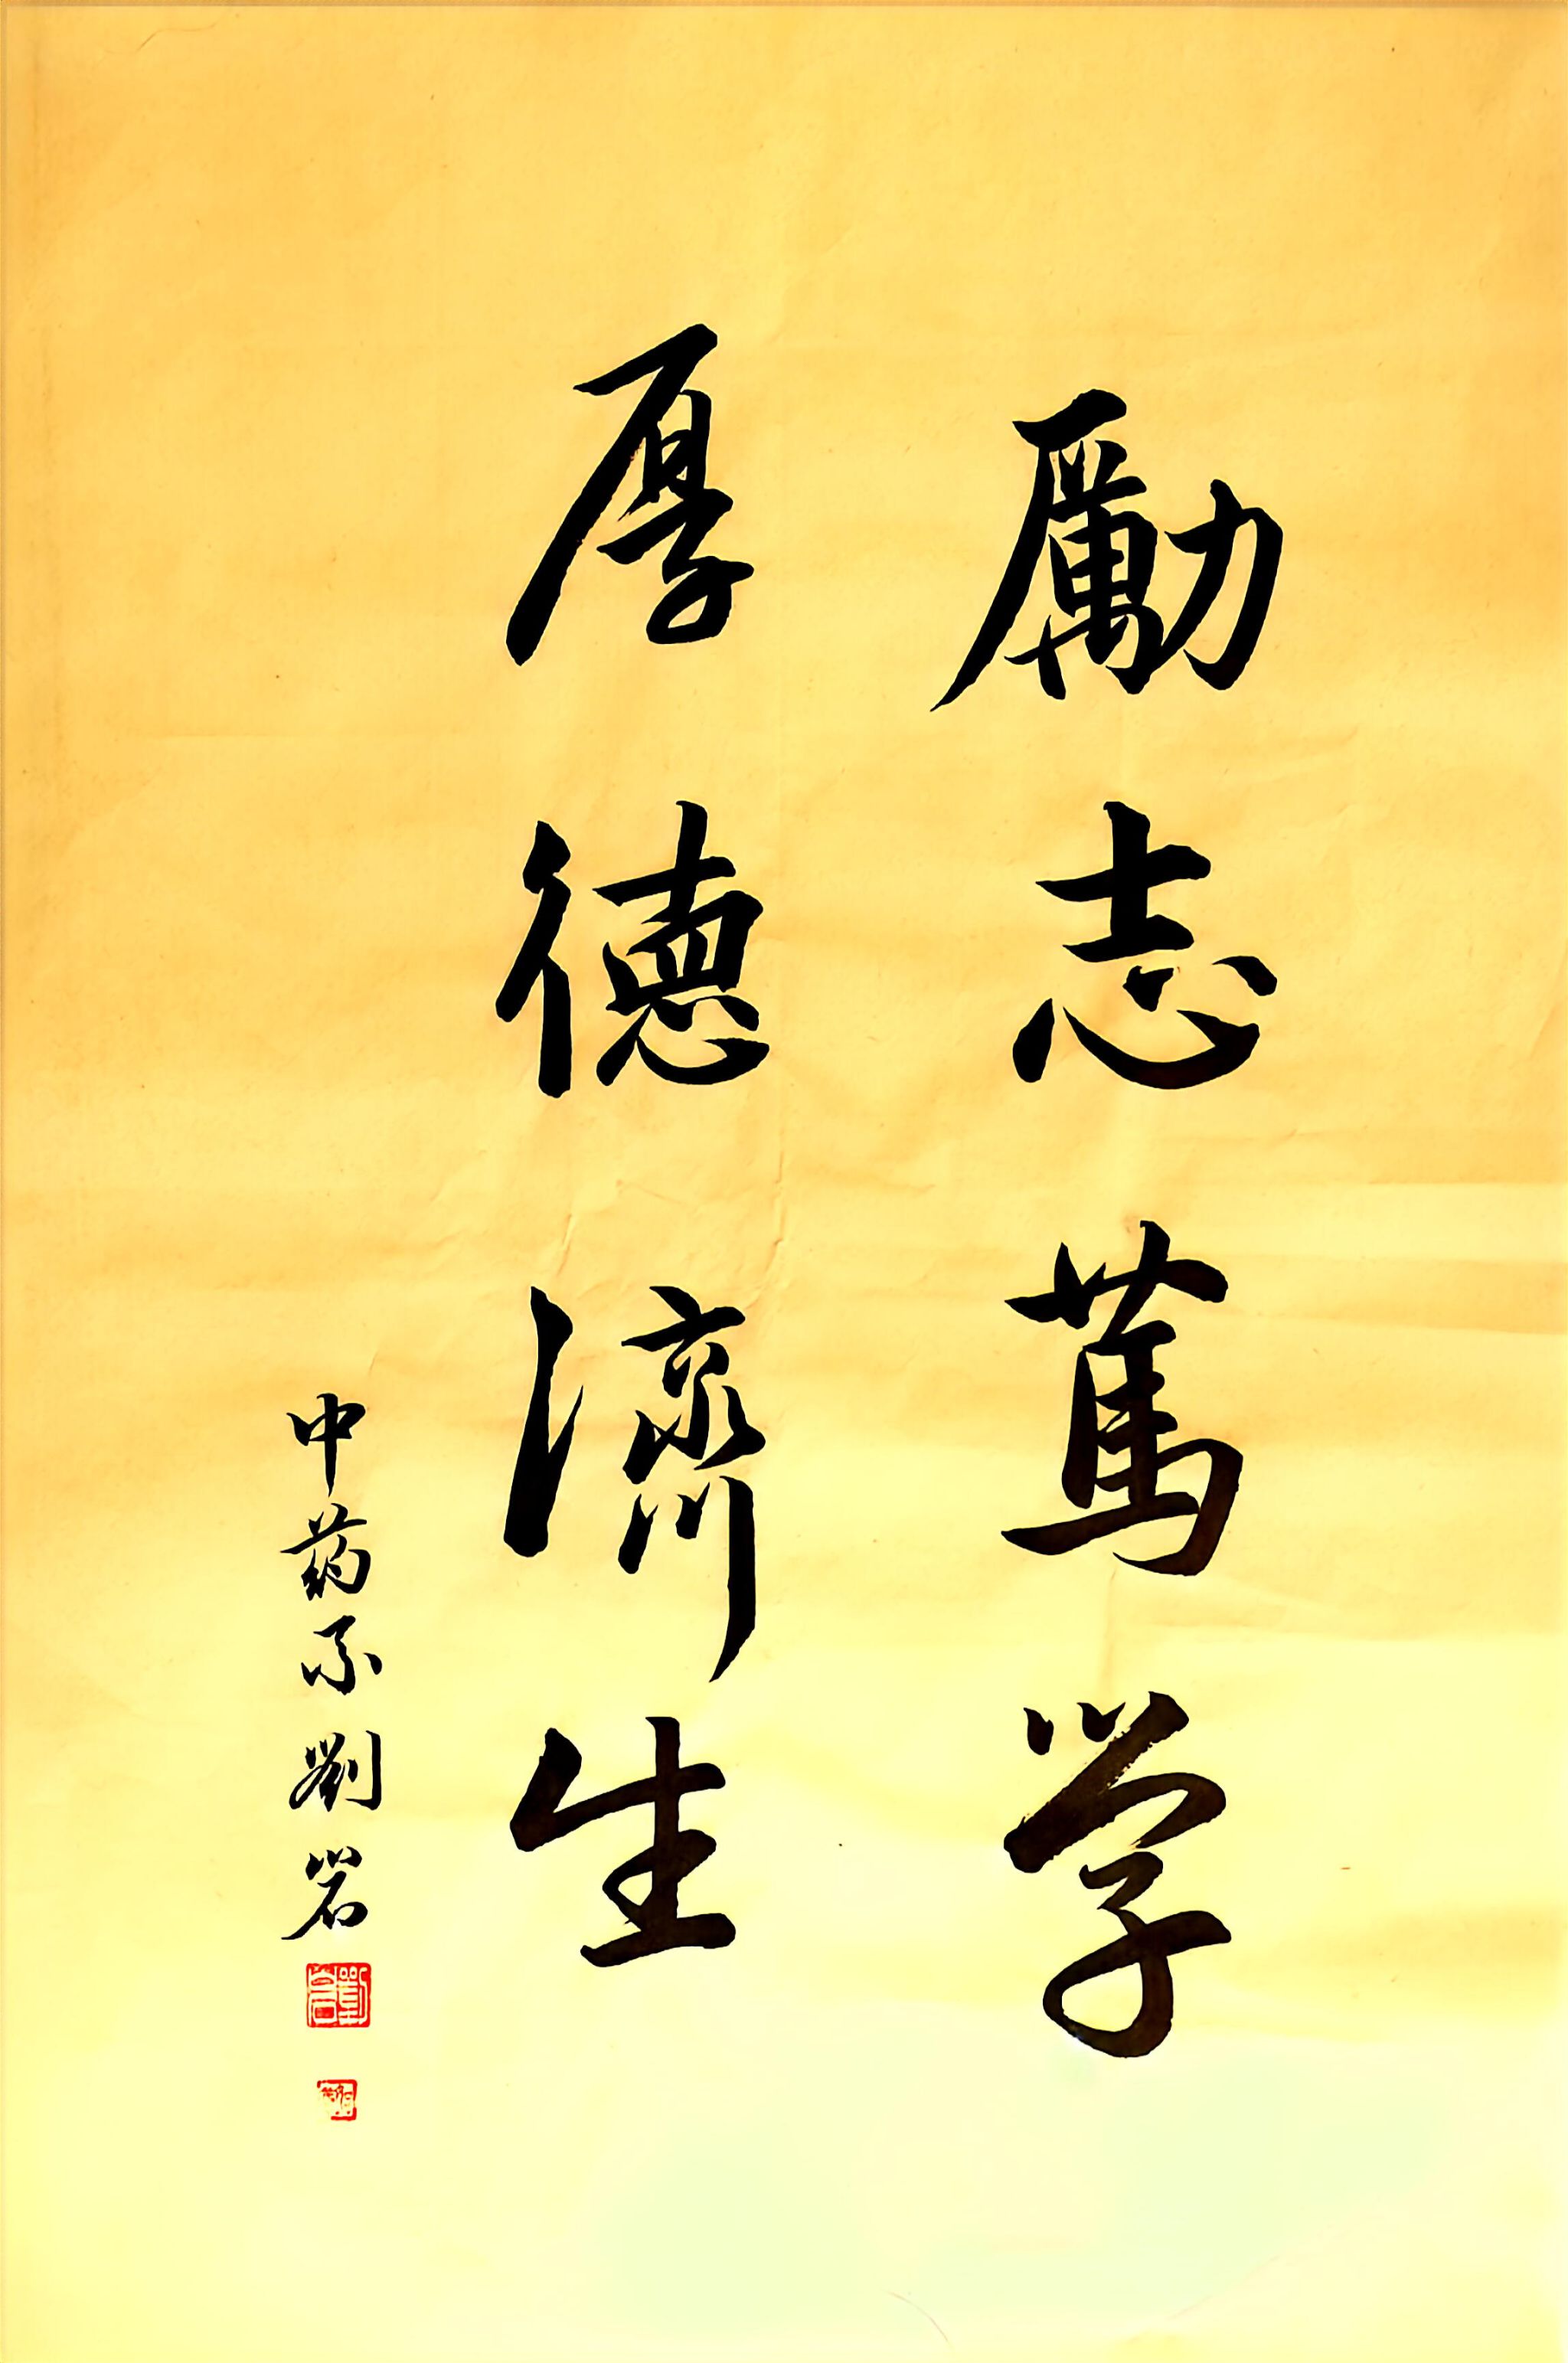 勵志篤学
厚德濟生
中药系劉岩